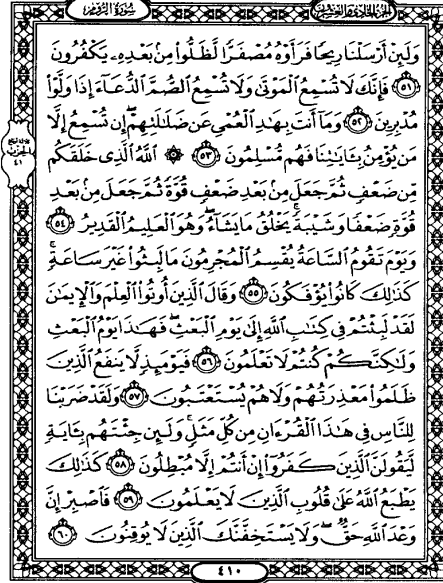 الجزء الحادي والعشرون
سورة الروم
وَلَئِنۡ أَرۡسَلۡنَا رِيحٗا فَرَأَوۡهُ مُصۡفَرّٗا لَّظَلُّواْ مِنۢ بَعۡدِهِۦ يَكۡفُرُونَ
٥١ فَإِنَّكَ لَا تُسۡمِعُ ٱلۡمَوۡتَىٰ وَلَا تُسۡمِعُ ٱلصُّمَّ ٱلدُّعَآءَ إِذَا وَلَّوۡاْ
مُدۡبِرِينَ ٥٢ وَمَآ أَنتَ بِهَٰدِ ٱلۡعُمۡيِ عَن ضَلَٰلَتِهِمۡۖ إِن تُسۡمِعُ إِلَّا
مَن يُؤۡمِنُ بِـَٔايَٰتِنَا فَهُم مُّسۡلِمُونَ ٥٣ ۞ ٱللَّهُ ٱلَّذِي خَلَقَكُم
مِّن ضَعۡفٖ ثُمَّ جَعَلَ مِنۢ بَعۡدِ ضَعۡفٖ قُوَّةٗ ثُمَّ جَعَلَ مِنۢ بَعۡدِ
قُوَّةٖ ضَعۡفٗا وَشَيۡبَةٗۚ يَخۡلُقُ مَا يَشَآءُۖ وَهُوَ ٱلۡعَلِيمُ ٱلۡقَدِيرُ ٥٤
وَيَوۡمَ تَقُومُ ٱلسَّاعَةُ يُقۡسِمُ ٱلۡمُجۡرِمُونَ مَا لَبِثُواْ غَيۡرَ سَاعَةٖۚ
كَذَٰلِكَ كَانُواْ يُؤۡفَكُونَ ٥٥ وَقَالَ ٱلَّذِينَ أُوتُواْ ٱلۡعِلۡمَ وَٱلۡإِيمَٰنَ
لَقَدۡ لَبِثۡتُمۡ فِي كِتَٰبِ ٱللَّهِ إِلَىٰ يَوۡمِ ٱلۡبَعۡثِۖ فَهَٰذَا يَوۡمُ ٱلۡبَعۡثِ
وَلَٰكِنَّكُمۡ كُنتُمۡ لَا تَعۡلَمُونَ ٥٦ فَيَوۡمَئِذٖ لَّا يَنفَعُ ٱلَّذِينَ
ظَلَمُواْ مَعۡذِرَتُهُمۡ وَلَا هُمۡ يُسۡتَعۡتَبُونَ ٥٧ وَلَقَدۡ ضَرَبۡنَا
لِلنَّاسِ فِي هَٰذَا ٱلۡقُرۡءَانِ مِن كُلِّ مَثَلٖۚ وَلَئِن جِئۡتَهُم بِـَٔايَةٖ
لَّيَقُولَنَّ ٱلَّذِينَ كَفَرُوٓاْ إِنۡ أَنتُمۡ إِلَّا مُبۡطِلُونَ ٥٨ كَذَٰلِكَ
يَطۡبَعُ ٱللَّهُ عَلَىٰ قُلُوبِ ٱلَّذِينَ لَا يَعۡلَمُونَ ٥٩ فَٱصۡبِرۡ إِنَّ
وَعۡدَ ٱللَّهِ حَقّٞۖ وَلَا يَسۡتَخِفَّنَّكَ ٱلَّذِينَ لَا يُوقِنُونَ ٦٠
٤١٠